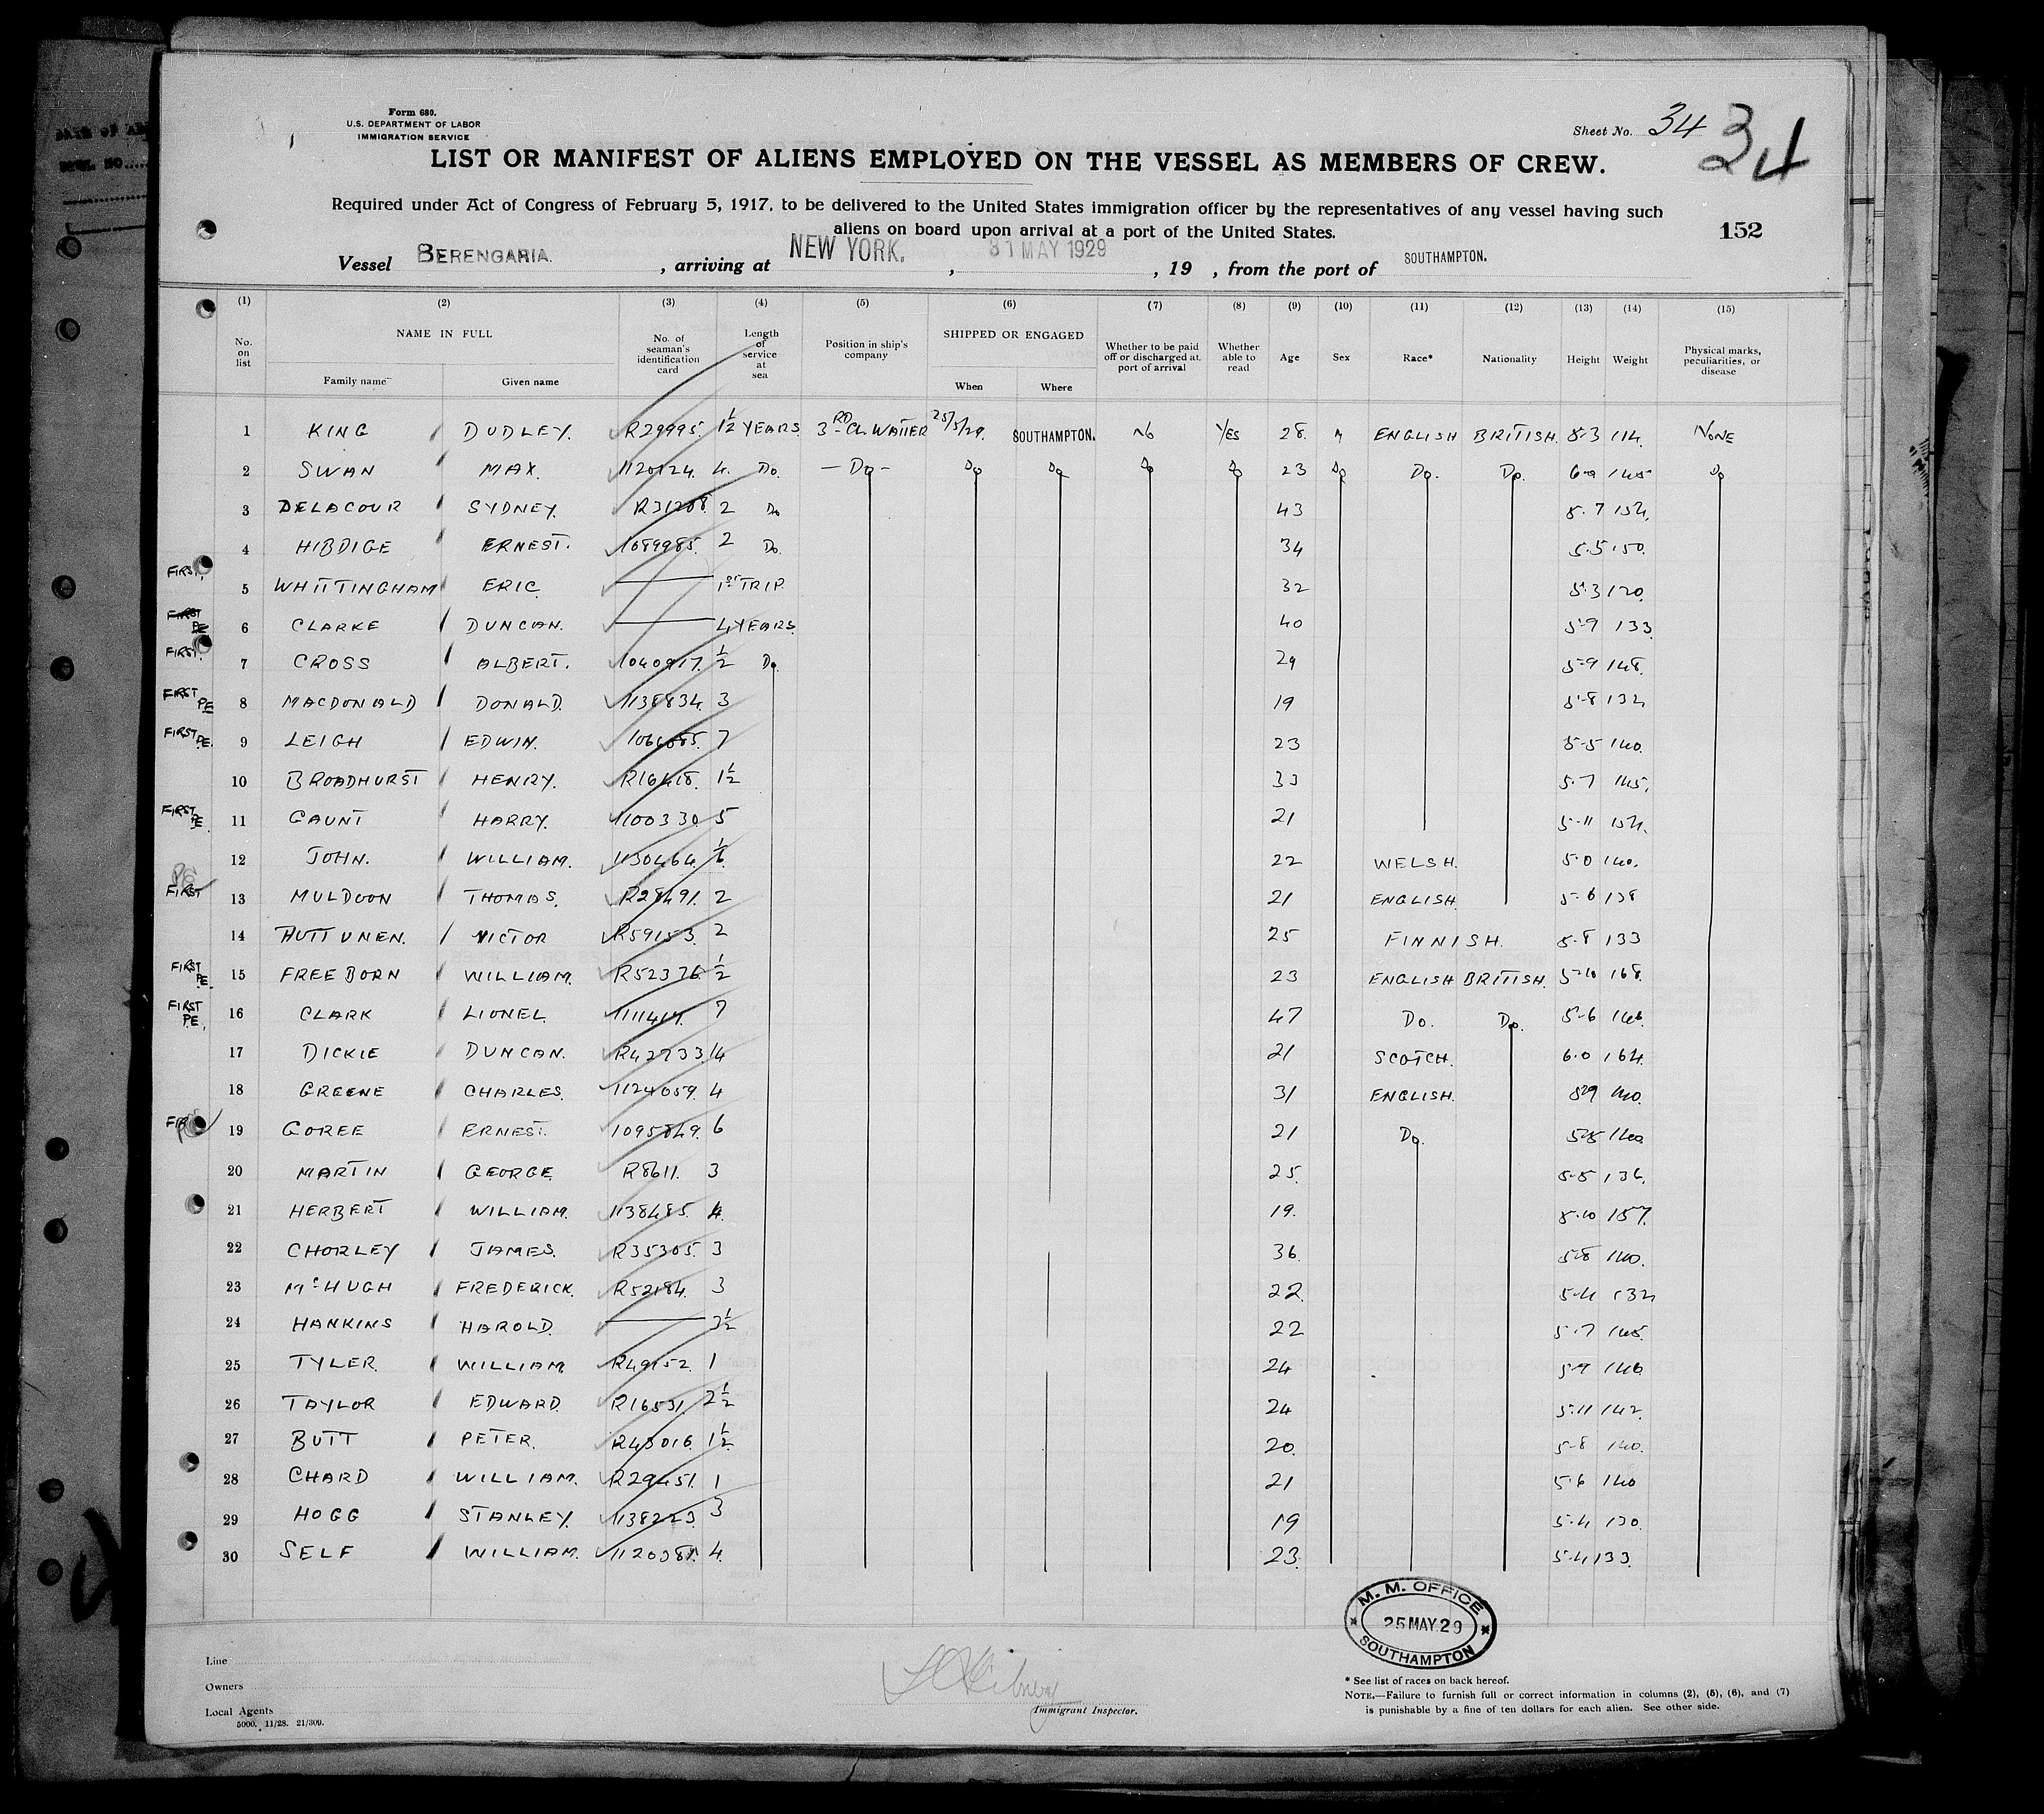 Form 680.
U.S. DEPARTMENT OF LABOR
IMMIGRATION SERVICE
Sheet No. 34 34
LIST OR MANIFEST OF ALIENS EMPLOYED ON THE VESSEL AS MEMBERS OF CREW.
Required under Act of Congress of February 5, 1917, to be delivered to the United States immigration officer by the representatives of any vessel having such
aliens on board upon arrival at a port of the United States.
152
Vessel BERENGARIA. , arriving at NEW YORK. , 31 MAY 1929 , 19 , from the port of SOUTHAMPTON.
(1) (2) (3) (4) (5) (6) (7) (8) (9) (10) (11) (12) (13) (14) (15)
No. on list NAME IN FULL Family name Given name No. of seaman's identification card Length of service at sea Position in ship's company SHIPPED OR ENGAGED When Where Whether to be paid off or discharged at port of arrival Whether able to read Age Sex Race* Nationality Height Weight Physical marks, peculiarities, or disease
1 KING DUDLEY. R29995. 1½ YEARS 3RD CL. WAITER 25/5/29. SOUTHAMPTON. NO YES 28. M ENGLISH BRITISH. 5.3 114. NONE
2 SWAN MAX. 1120124. 4. Do. - Do - Do Do Do Do 23 Do Do. Do. 145 Do
3 DELACOUR SYDNEY. R31208. 2 Do 43 5.7 154.
4 HIBDIGE ERNEST. 1089985. 2 Do. 34 5.5 150.
FIRST. 5 WHITTINGHAM ERIC 1ST TRIP. 32 5.3 120.
FIRST PE 6 CLARKE DUNCAN. 4 YEARS. 40 5-9 133.
FIRST. 7 CROSS ALBERT. 1040917. ½ Do. 29 5-9 148.
FIRST PE 8 MACDONALD DONALD. 1138834. 3 19 5-8 134
FIRST PE. 9 LEIGH EDWIN. 7 23 5-5 140.
10 BROADHURST HENRY. R16418. 1½ 33 5.7 145.
FIRST PE. 11 GAUNT HARRY. 1100330. 5 21 5-11 154.
12 JOHN. WILLIAM. 1130464. 22 WELSH. 5.0 140.
FIRST 13 MULDOON THOMAS. R28491. 2 21 ENGLISH. 5.6 138
14 HUTTUNEN. VICTOR R59153. 2 25 FINNISH. 5.8 133
FIRST PE. 15 FREEBORN WILLIAM. R52376. ½ 23 ENGLISH BRITISH. 5-10 168.
FIRST PE. 16 CLARK LIONEL. 7 47 Do. Do. 5-6 148.
17 DICKIE DUNCAN. R42733. 21 SCOTCH. 6.0 164.
18 GREENE CHARLES. 1124059. 4 31 ENGLISH. 5-9 140.
19 GOREE ERNEST. 1095849. 6 21 Do. 5-8 140
20 MARTIN GEORGE. R8611. 3 25. 5-5 136.
21 HERBERT WILLIAM. 1138485. 4. 19. 5.10 157.
22 CHORLEY JAMES. R35305. 3 36. 5-8 140.
23 McHUGH FREDERICK. R52184. 3 22. 5.4 134
24 HANKINS HAROLD. 3½ 22 5.7 145.
25 TYLER. WILLIAM. R49152. 1 24 5-9 146
26 TAYLOR EDWARD. R16531. 2½ 24 5.11 142.
27 BUTT PETER. R43016. 1½ 20. 5-8 140.
28 CHARD WILLIAM. R29451. 1 21 5.6 140
29 HOGG STANLEY. 1138223. 3 19 5.4 130.
30 SELF WILLIAM. 4. 23. 5.4 133.
M. M. OFFICE
25 MAY 29
SOUTHAMPTON
Line
Owners
Local Agents
5000. 11/28. 21/309.
Immigrant Inspector.
* See list of races on back hereof.
NOTE.—Failure to furnish full or correct information in columns (2), (5), (6), and (7)
is punishable by a fine of ten dollars for each alien. See other side.